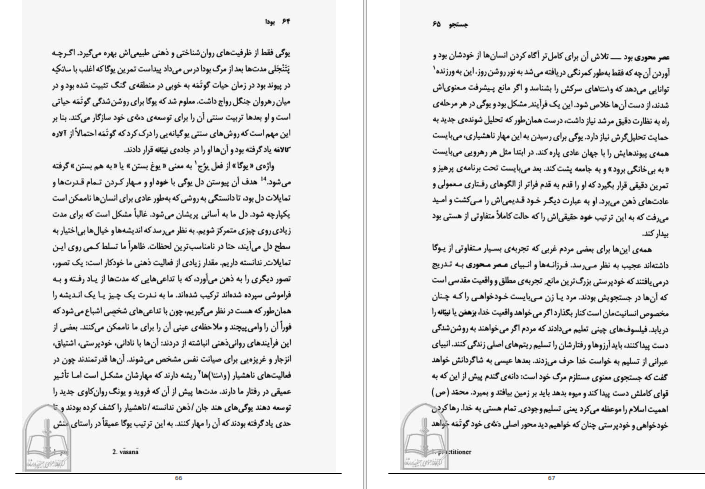 ۶۴ بودا
یوگی فقط از ظرفیت‌های روان‌شناختی و ذهنی طبیعی‌اش بهره می‌گیرد. اگرچه
پَتَنْجَلی مدت‌ها بعد از مرگ بودا درس می‌داد پیداست تمرین یوگا که اغلب با سانکیه
در پیوند بود در زمان حیات گوتَمَه به خوبی در منطقه‌ی گنگ تثبیت شده بود و در
میان رهروان جنگل رواج داشت. معلوم شد که یوگا برای روشن‌شدگی گوتَمَه حیاتی
است و او بعدها تربیت سنتی آن را برای توسعه‌ی دمّه‌ی خود سازگار می‌کند. بنا بر
این مهم است که روش‌های سنتی یوگیانه‌یی را درک کرد که گوتَمَه احتمالاً از آلاره
کالامَه یاد گرفته بود و آن‌ها او را در جاده‌ی نیبّانَه قرار دادند.
واژه‌ی «یوگا» از فعل یوْج۱ به معنی «یوغ بستن» یا «به هم بستن» گرفته
می‌شود.۱۴ هدف آن پیوستن دل یوگی با خود او و مهار کردن تمام قدرت‌ها و
تمایلات دل بود، تا دانستگی به روشی که به‌طور عادی برای انسان‌ها ناممکن است
یکپارچه شود. دل ما به آسانی پریشان می‌شود. غالباً مشکل است که برای مدت
زیادی روی چیزی متمرکز شویم. به نظر می‌رسد که اندیشه‌ها و خیال‌ها بی‌اختیار به
سطح دل می‌آیند، حتا در نامناسب‌ترین لحظات. ظاهراً ما تسلط کمی روی این
تمایلات ندانسته داریم. مقدار زیادی از فعالیت ذهنی ما خودکار است: یک تصور،
تصور دیگری را به ذهن می‌آورد، که با تداعی‌هایی که مدت‌ها از یاد رفته و به
فراموشی سپرده شده‌اند ترکیب شده‌اند. ما به ندرت یک چیز یا یک اندیشه را
همان‌طور که هست در نظر می‌گیریم، چون با تداعی‌های شخصی اشباع می‌شود که
فوراً آن را وامی‌پیچند و ملاحظه‌ی عینی آن را برای ما ناممکن می‌کنند. بعضی از
این فرآیندهای روانی‌ذهنی انباشته از دردند: آن‌ها با نادانی، خودپرستی، اشتیاق،
انزجار و غریزه‌یی برای صیانت نفس مشخص می‌شوند. آن‌ها قدرتمندند چون در
فعالیت‌های ناهشیار (واسَنا)ها۲ ریشه دارند که مهارشان مشکل است اما تأثیر
عمیقی در رفتار ما دارند. مدت‌ها پیش از آن که فروید و یونگ روان‌کاوی جدید را
توسعه دهند یوگی‌های هند جان / ذهن ندانسته / ناهشیار را کشف کرده بودند و تا
حدی یاد گرفته بودند که آن را مهار کنند. به این ترتیب یوگا عمیقاً در راستای منش
2. vāsanā
66
جستجو ۶۵
عصر محوری بود — تلاش آن برای کامل‌تر آگاه کردن انسان‌ها از خودشان بود و
آوردن آن‌چه که فقط به‌طور کمرنگی دریافته می‌شد به نور روشن روز. این به ورزنده۱
توانایی می‌دهد که واسَناهای سرکش را بشناسد و اگر مانع پیشرفت معنوی‌اش
شدند، از دست آن‌ها خلاص شود. این یک فرآیند مشکل بود و یوگی در هر مرحله‌ی
راه به نظارت دقیق مرشد نیاز داشت، درست همان‌طور که تحلیل شونده‌ی جدید به
حمایت تحلیل‌گرش نیاز دارد. یوگی برای رسیدن به این مهار ناهشیاری، می‌بایست
همه‌ی پیوندهایش را با جهان عادی پاره کند. در ابتدا مثل هر رهرویی می‌بایست
«به بی‌خانگی برود» و به جامعه پشت کند. بعد می‌بایست تحت برنامه‌ی پرهیز و
تمرین دقیقی قرار بگیرد که او را قدم به قدم فراتر از الگوهای رفتاری معمولی و
عادت‌های ذهن می‌برد. او به عبارت دیگر خود قدیمی‌اش را می‌کشت و امید
می‌رفت که به این ترتیب خود حقیقی‌اش را که حالت کاملاً متفاوتی از هستی بود
بیدار کند.
همه‌ی این‌ها برای بعضی مردم غربی که تجربه‌ی بسیار متفاوتی از یوگا
داشته‌اند عجیب به نظر می‌رسد. فرزانه‌ها و انبیای عصر محوری به تدریج
درمی‌یافتند که خودپرستی بزرگ‌ترین مانع، تجربه‌ی مطلق و واقعیت مقدسی است
که آن‌ها در جستجویش بودند. مرد یا زن می‌بایست خودخواهی را که چنان
مخصوص انسانیت‌مان است کنار بگذارد اگر می‌خواهد واقعیت خدا، برَهمَن یا نیبّانَه را
دریابد. فیلسوف‌های چینی تعلیم می‌دادند که مردم اگر می‌خواهند به روشن‌شدگی
دست پیدا کنند، باید آرزوها و رفتارشان را تسلیم ریتم‌های اصلی زندگی کنند. انبیای
عبرانی از تسلیم به خواست خدا حرف می‌زدند. بعدها عیسی به شاگردانش خواهد
گفت که جستجوی معنوی مستلزم مرگ خود است: دانه‌ی گندم پیش از این که به
قوای کاملش دست پیدا کند و میوه بدهد باید بر زمین بیافتد و بمیرد. محمّد (ص)
اهمیت اسلام را موعظه می‌کرد یعنی تسلیم وجودی تمام هستی به خدا. رها کردن
خودخواهی و خودپرستی چنان که خواهیم دید محور اصلی دمّه‌ی خود گوتَمَه خواهد
practitioner
67